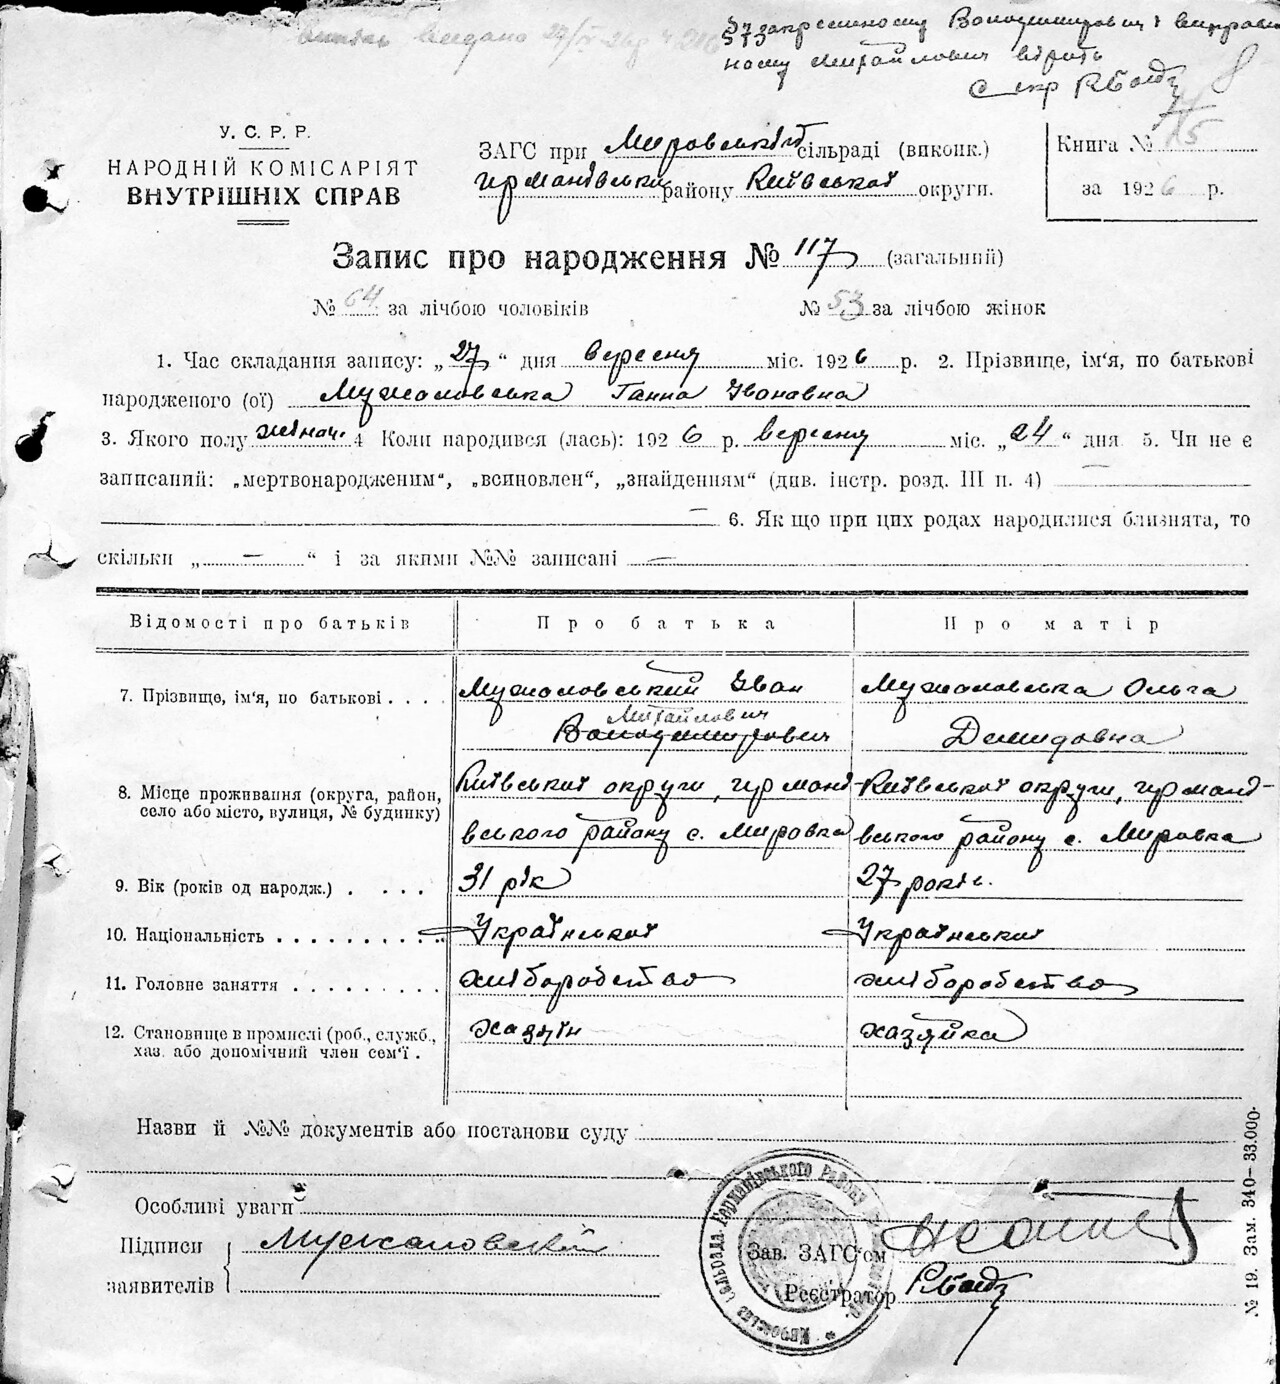 видано 27/IX 26р
§7 закресленому Володимирович і виправле-
ному Михайлович вірить
Секр
8
У. С. Р. Р.
НАРОДНІЙ КОМІСАРІЯТ
ВНУТРІШНІХ СПРАВ
ЗАГС при Мировській сільраді (виконк.)
Германівськ. району Київської округи.
Книга №
за 1926 р.
Запис про народження № 117 (загальний)
№ 64 за лічбою чоловіків № 53 за лічбою жінок
1. Час складання запису: „27“ дня вересня міс. 1926 р. 2. Прізвище, ім‘я, по батькові
народженого (ої) Мужаловська Ганна Івановна
3. Якого полу жіноч. 4 Коли народився (лась): 1926 р. вересня міс. „24“ дня 5. Чи не є
записаний: „мертвонародженим“, „всиновлен“, „знайденням“ (див. інстр. розд. III п. 4) —
— 6. Як що при цих родах народилися близнята, то
скільки „ — “ і за якими №№ записані —
Відомості про батьків Про батька Про матір
7. Прізвище, ім‘я, по батькові . . . . Мужаловський Іван Мужаловська Ольга
Михайлович
Володимирович Демидовна
8. Місце проживання (округа, район, село або місто, вулиця, № будинку) Київської округи, Германі- Київської округи, Германі-
вського району с. Мировка вського району с. Мировка
9. Вік (років од народж.) . . . . 31 рік 27 років.
10. Національність . . . . . . . . . . Української Української
11. Головне заняття . . . . . . . . . хліборобство хліборобство
12. Становище в промислі (роб., служб., хазяїн хазяйка
хаз. або допомічний член сем‘ї .
Назви й №№ документів або постанови суду
Особливі уваги
Підписи Мужаловский
заявителів
Зав. ЗАГС‘ом
Реєстратор
№ 19. Зам. 340—33.000.